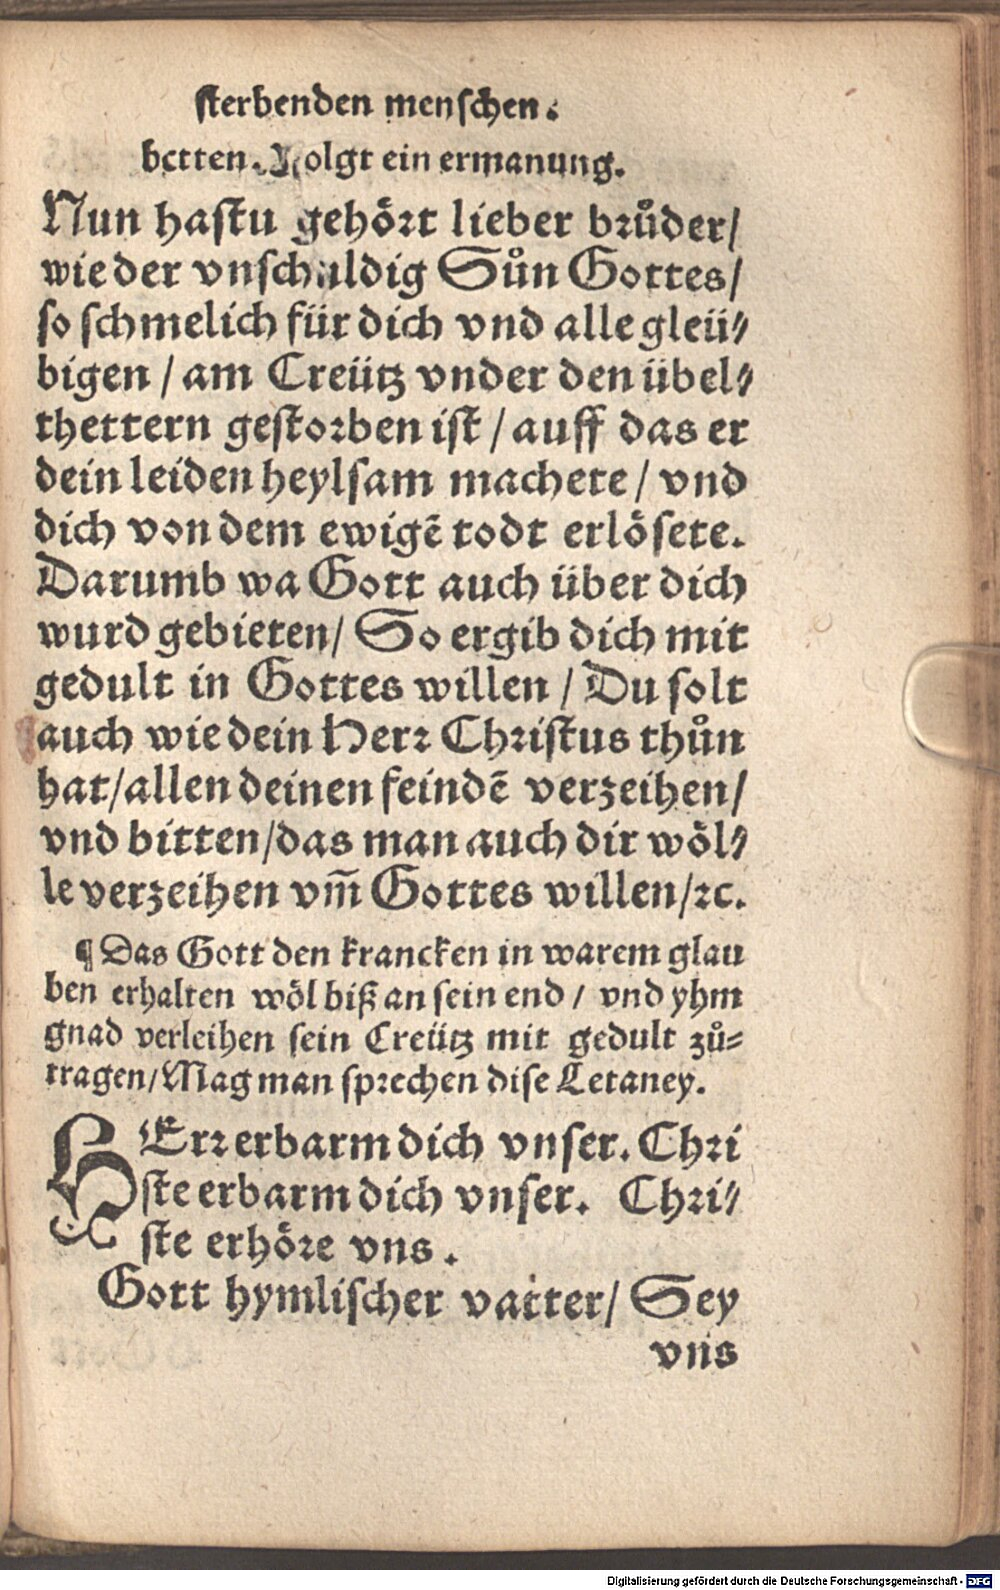 sterbenden menschen.
betten. Folgt ein ermanung.
Nun hastu gehört lieber brůder/
wie der vnschuldig Sůn Gottes/
so schmelich für dich vnd alle gleü⸗
bigen / am Creütz vnder den übel⸗
thettern gestorben ist / auff das er
dein leiden heylsam machete / vnd
dich von dem ewigē todt erlösete.
Darumb wa Gott auch über dich
wurd gebieten/ So ergib dich mit
gedult in Gottes willen / Du solt
auch wie dein Herr Christus thůn
hat/allen deinen feindē verzeihen/
vnd bitten/das man auch dir wöl⸗
le verzeihen vm̄ Gottes willen/ꝛc.
¶ Das Gott den krancken in warem glau
ben erhalten wöl biß an sein end / vnd yhm
gnad verleihen sein Creütz mit gedult zů⸗
tragen/Mag man sprechen dise Letaney.
HErr erbarm dich vnser. Chri
ste erbarm dich vnser. Chri⸗
ste erhöre vns.
Gott hymlischer vatter/ Sey
vns
Digitalisierung gefördert durch die Deutsche Forschungsgemeinschaft - DFG